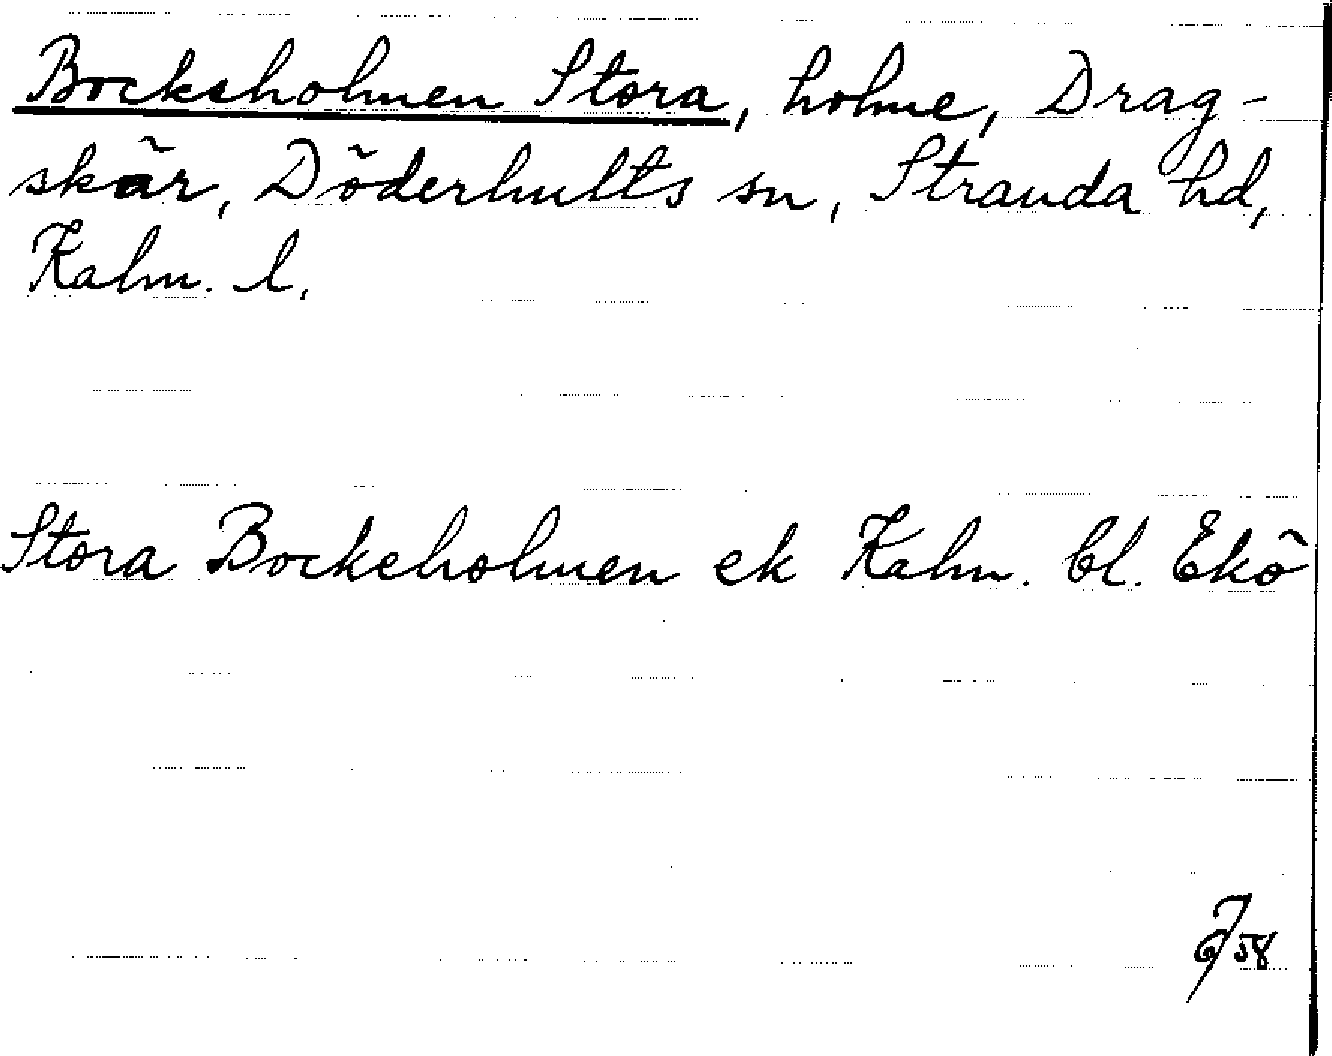 Bocksholmen Stora, holme, Drag-
skär, Döderhults sn, Stranda hd,
Kalm. l.
Stora Bockeholmen ek Kalm. bl. Ekö
58